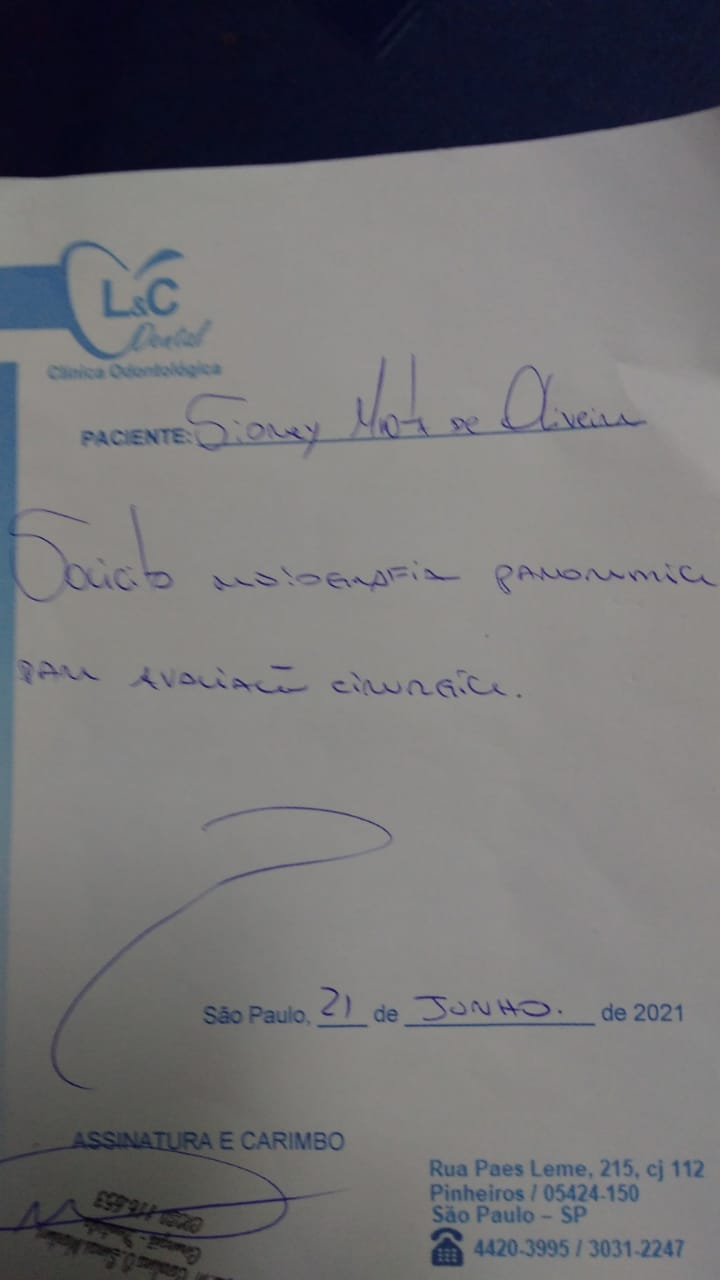 L&C
Dental
Clínica Odontológica
PACIENTE: Sidney Mota de Oliveira
Solicito radiografia panoramica
para avaliação cirurgica.
São Paulo, 21 de JUNHO. de 2021
ASSINATURA E CARIMBO
Rua Paes Leme, 215, cj 112
Pinheiros / 05424-150
São Paulo – SP
4420-3995 / 3031-2247